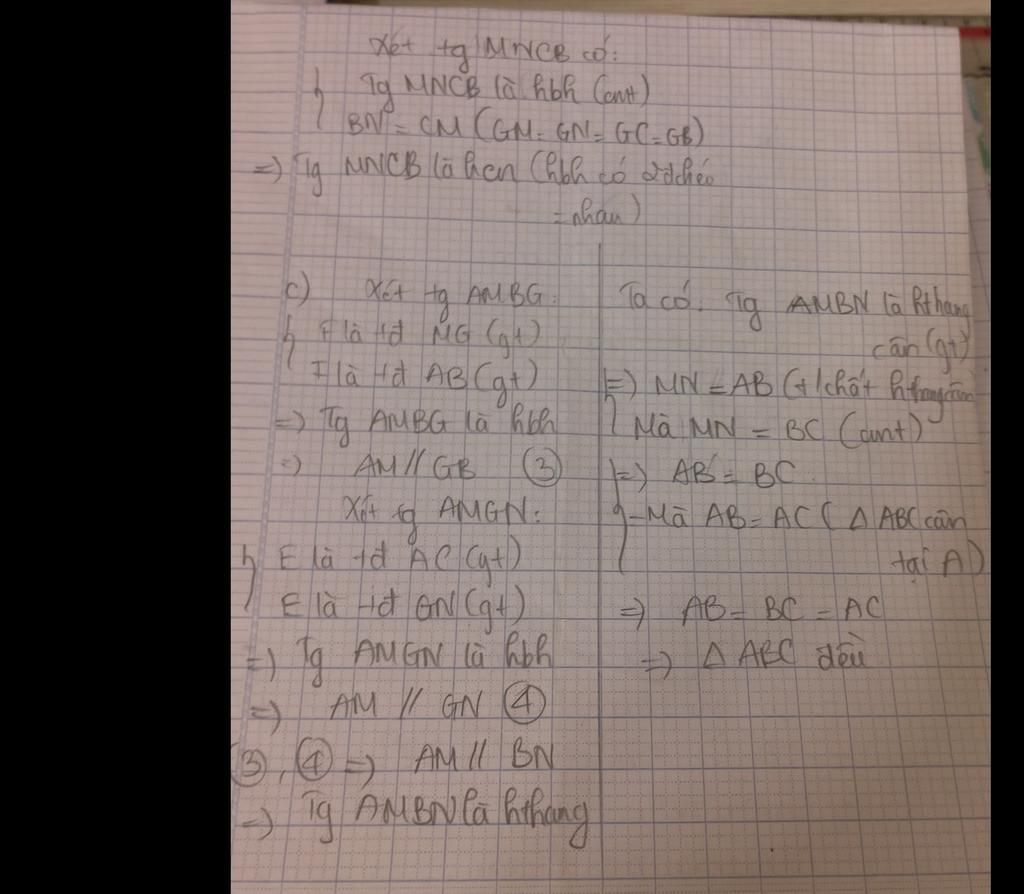 Xét tg MNCB có:
Tg MNCB là hbh (cmt)
BN = CM (GM = GN = GC = GB)
=> Tg MNCB là hcn (hbh có 2đchéo
= nhau)
c) Xét tg AMBG:
F là tđ MG (gt)
F là tđ AB (gt)
=> Tg AMBG là hbh
=> AM // GB (3)
Xét tg AMGN:
E là tđ AC (gt)
E là tđ GN (gt)
=> Tg AMGN là hbh
=> AM // GN (4)
(3), (4) => AM // BN
=> Tg AMBN là hthang
Ta có: Tg AMBN là hthang
cân (gt)
=> MN = AB (t/chất hthang cân
Mà MN = BC (cmt)
=> AB = BC
- Mà AB = AC (Δ ABC cân
tại A)
=> AB = BC = AC
=> Δ ABC đều